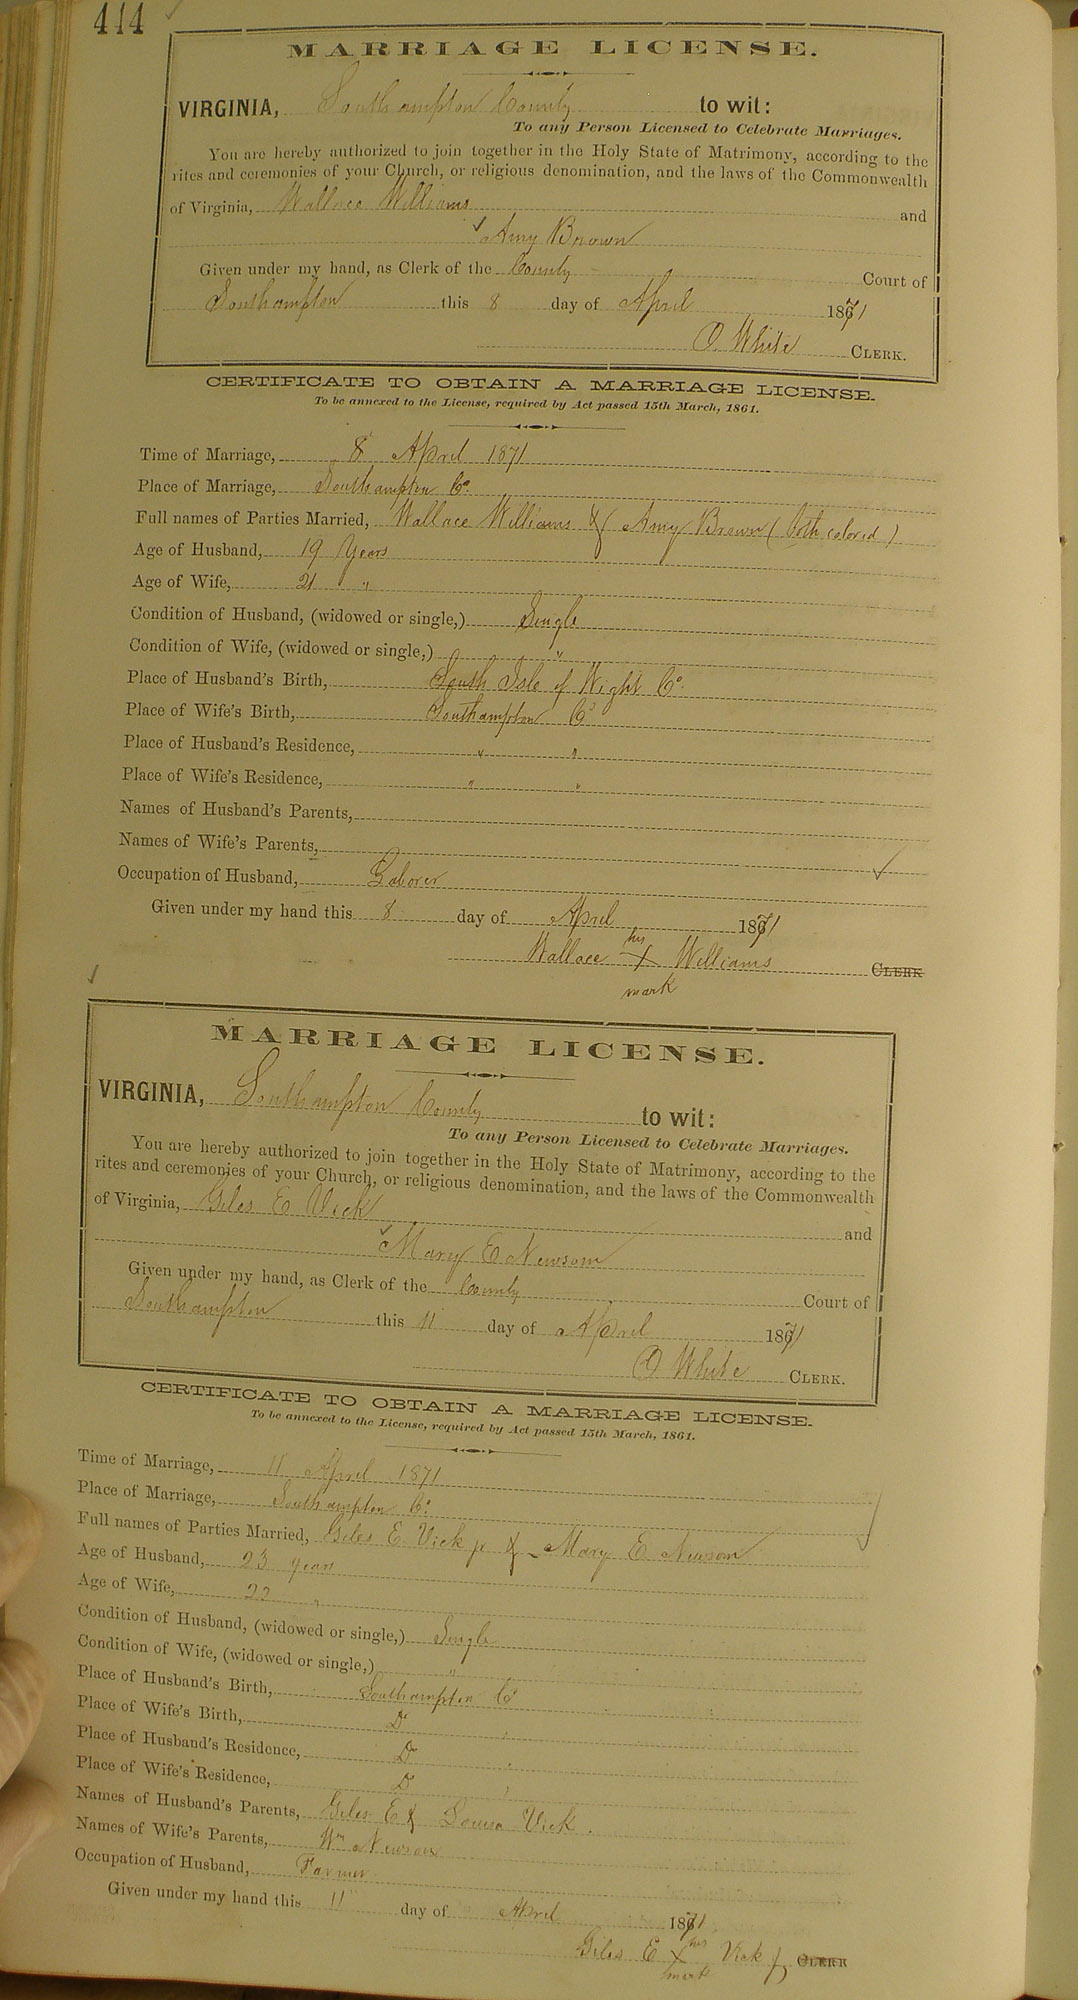 414
MARRIAGE LICENSE.
VIRGINIA, Southampton County to wit:
To any Person Licensed to Celebrate Marriages.
You are hereby authorized to join together in the Holy State of Matrimony, according to the
rites and ceremonies of your Church, or religious denomination, and the laws of the Commonwealth
of Virginia, Wallace Williams and
Amy Brown
Given under my hand, as Clerk of the County Court of
Southampton this 8 day of April 1871
O. White CLERK.
CERTIFICATE TO OBTAIN A MARRIAGE LICENSE.
To be annexed to the License, required by Act passed 15th March, 1861.
Time of Marriage, 8 April 1871
Place of Marriage, Southampton Co.
Full names of Parties Married, Wallace Williams & Amy Brown (both colored)
Age of Husband, 19 Years
Age of Wife, 21 "
Condition of Husband, (widowed or single,) Single
Condition of Wife, (widowed or single,) "
Place of Husband's Birth, South Isle of Wight Co.
Place of Wife's Birth, Southampton Co
Place of Husband's Residence, " "
Place of Wife's Residence, " "
Names of Husband's Parents,
Names of Wife's Parents,
Occupation of Husband, Laborer
Given under my hand this 8 day of April 1871
Wallace his X mark Williams CLERK
MARRIAGE LICENSE.
VIRGINIA, Southampton County to wit:
To any Person Licensed to Celebrate Marriages.
You are hereby authorized to join together in the Holy State of Matrimony, according to the
rites and ceremonies of your Church, or religious denomination, and the laws of the Commonwealth
of Virginia, Giles E Vick and
Mary E Newsom
Given under my hand, as Clerk of the County Court of
Southampton this 11 day of April 1871
O White CLERK.
CERTIFICATE TO OBTAIN A MARRIAGE LICENSE.
To be annexed to the License, required by Act passed 15th March, 1861.
Time of Marriage, 11 April 1871
Place of Marriage, Southampton Co.
Full names of Parties Married, Giles E Vick jr & Mary E Newsom
Age of Husband, 23 years
Age of Wife, 22 "
Condition of Husband, (widowed or single,) Single
Condition of Wife, (widowed or single,) "
Place of Husband's Birth, Southampton Co
Place of Wife's Birth, Do
Place of Husband's Residence, Do
Place of Wife's Residence, Do
Names of Husband's Parents, Giles E & Louisa Vick.
Names of Wife's Parents, Wm Newsom
Occupation of Husband, Farmer
Given under my hand this 11 day of April 1871
Giles E his X mark Vick jr CLERK